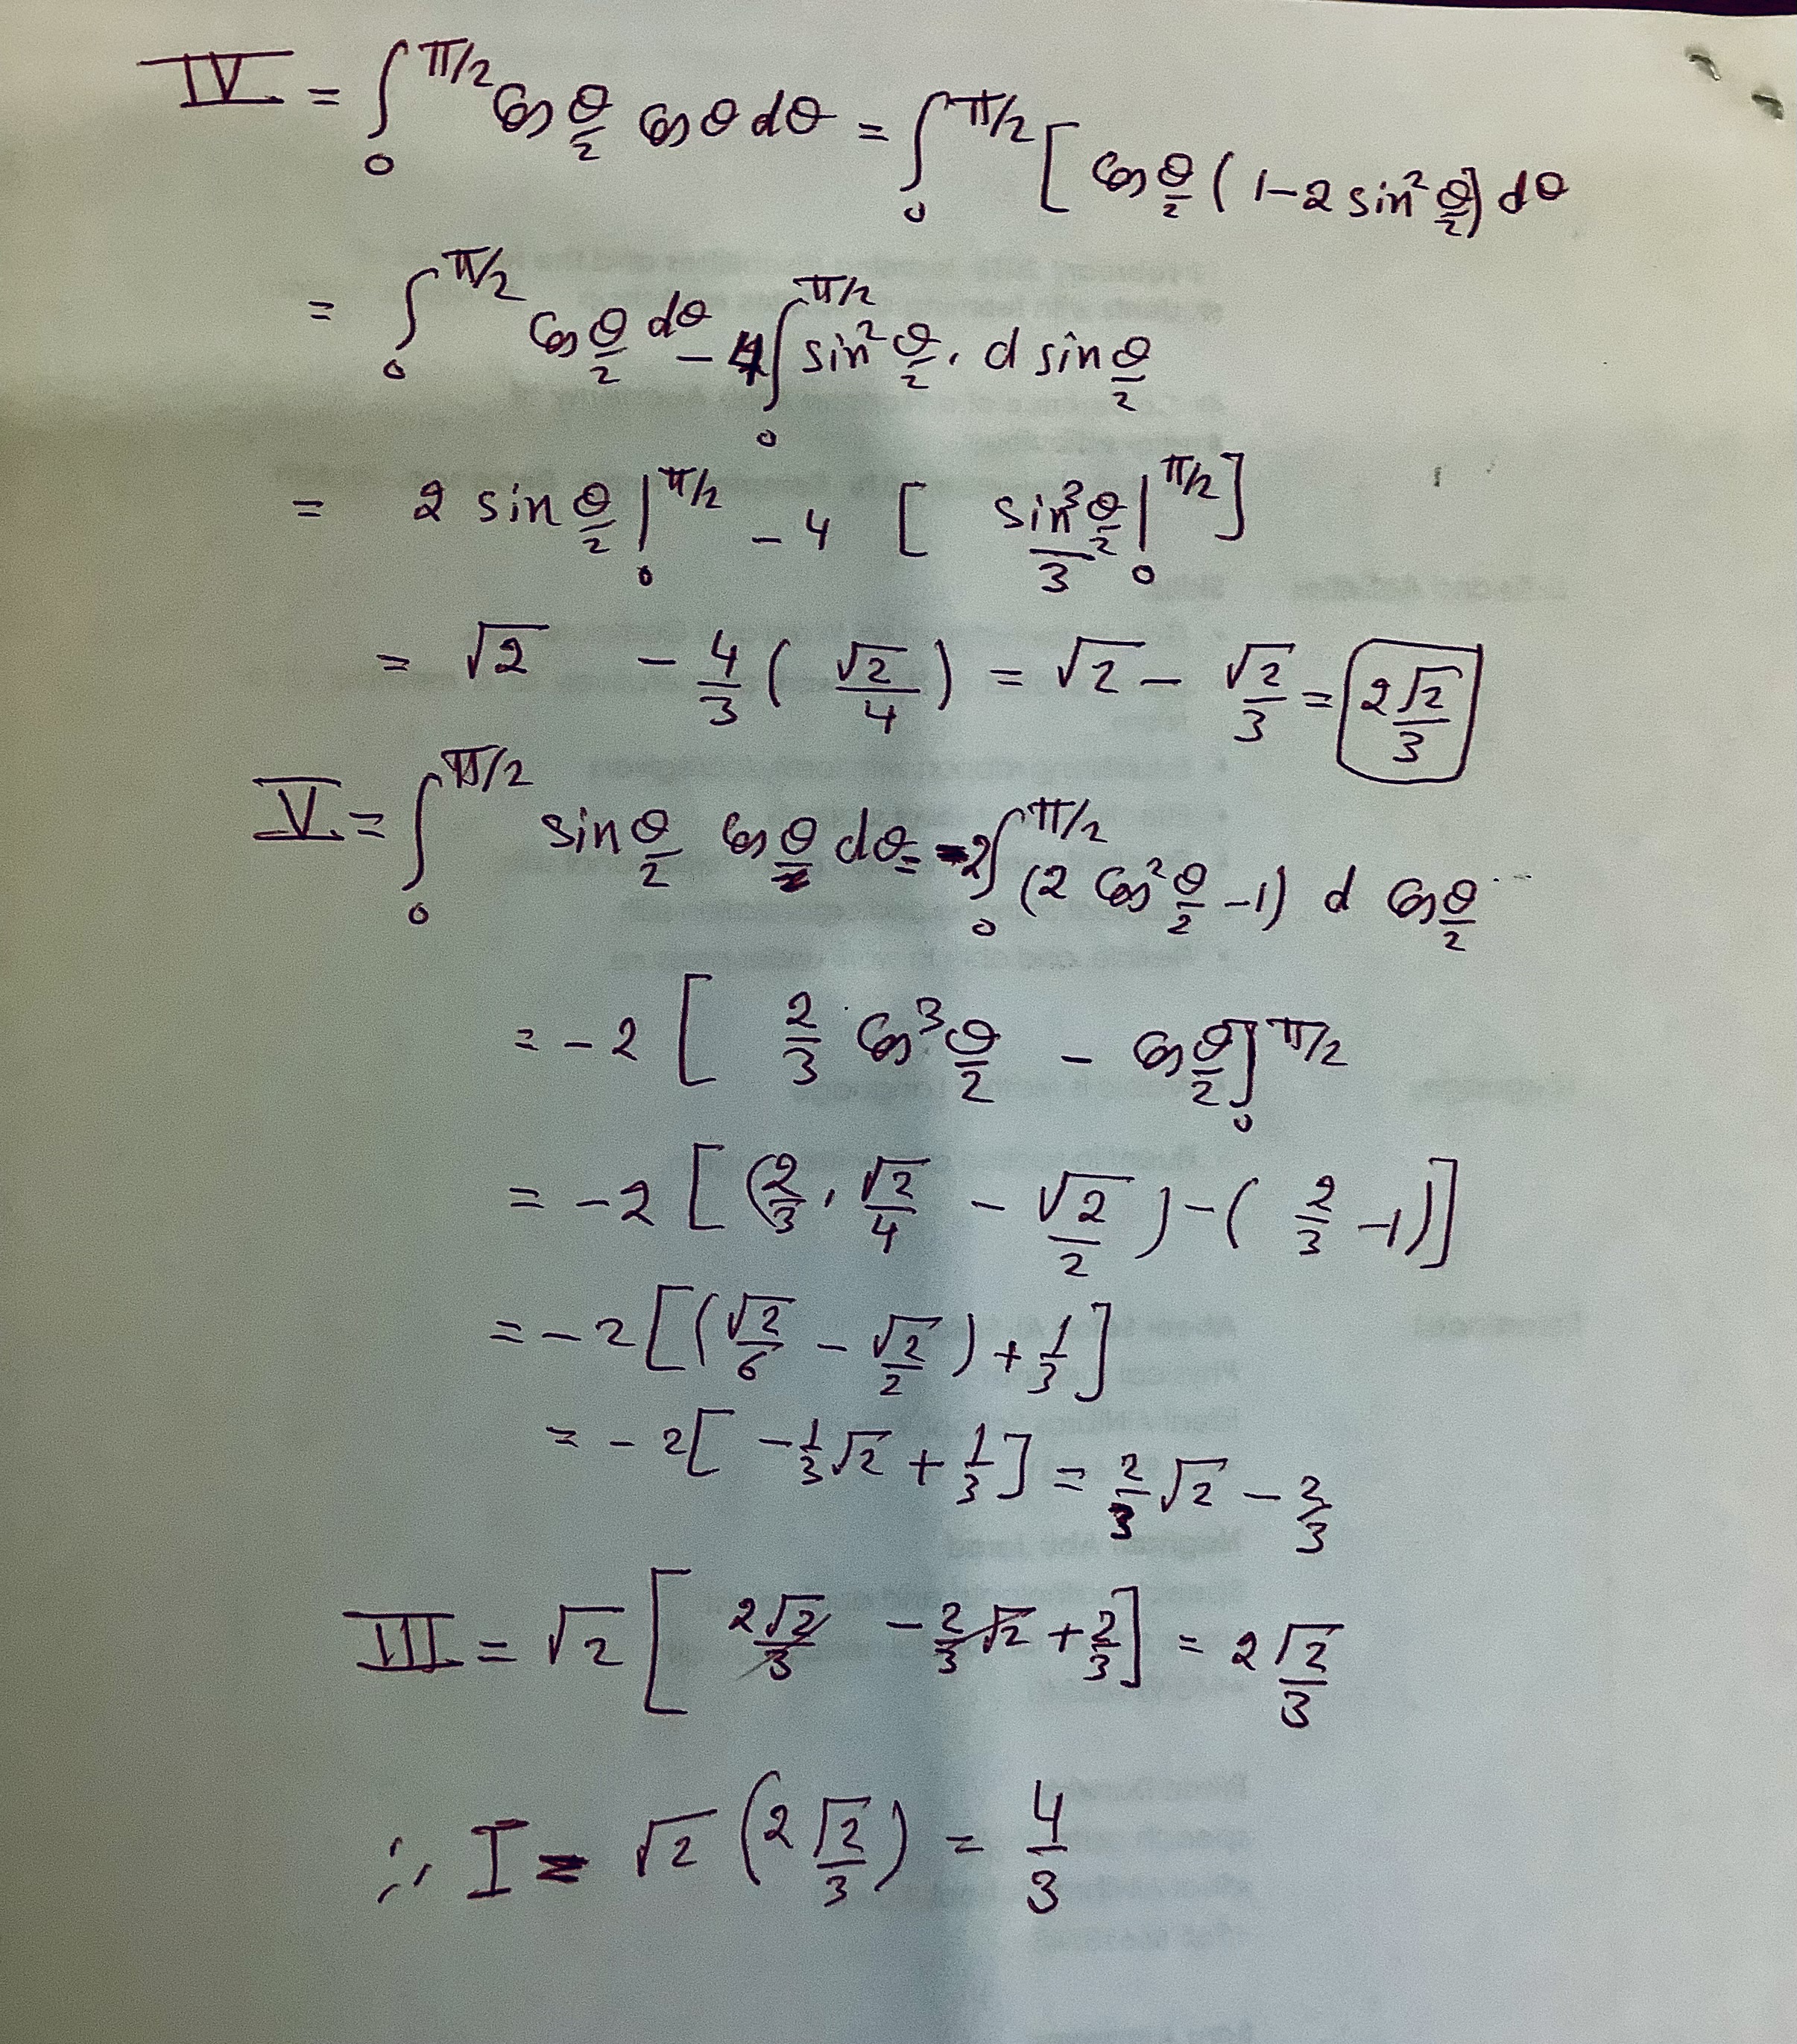 IV = ∫₀^{π/2} Cos θ/2 Cos θ dθ = ∫₀^{π/2} [ Cos θ/2 ( 1 - 2 sin² θ/2 ] dθ
= ∫₀^{π/2} Cos θ/2 dθ - 4 ∫₀^{π/2} sin² θ/2 . d sin θ/2
= 2 sin θ/2 |₀^{π/2} - 4 [ sin³ θ/2 / 3 |₀^{π/2} ]
= √2 - 4/3 ( √2/4 ) = √2 - √2/3 = 2√2/3
V = ∫₀^{π/2} sin θ/2 Cos θ dθ = -2 ∫₀^{π/2} (2 Cos² θ/2 - 1) d Cos θ/2
= -2 [ 2/3 Cos³ θ/2 - Cos θ/2 ]₀^{π/2}
= -2 [ (2/3 . √2/4 - √2/2 ) - ( 2/3 - 1)]
= -2 [ ( √2/6 - √2/2 ) + 1/3 ]
= -2 [ -1/3 √2 + 1/3 ] = 2/3 √2 - 2/3
III = √2 [ 2√2/3 - 2/3 √2 + 2/3 ] = 2√2/3
∴ I = √2 ( 2√2/3 ) = 4/3